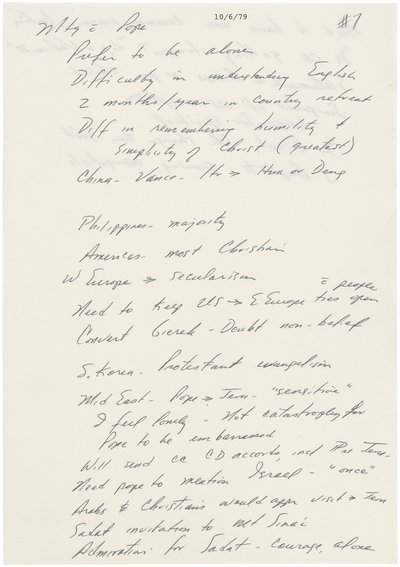 10/6/79
#1
Mtg c̄ Pope
Prefer to be alone
Difficulty in understanding English
2 months/year in country retreat
Diff in remembering humility &
simplicity of Christ (greatest)
China - Vance - ltr → Hua or Deng
Philippines - majority
Americas - most Christian
W Europe → secularism
Need to keep US → E Europe ties open
c̄ people
Convert Gierek - Doubt non-belief
S. Korea - Protestant evangelism
Mid East - Pope → Jeru - "sensitive"
I feel - Not catastrophy for
Pope to be embarrassed
Will send cc CD accords, incl Jeru
Need pope to mention Israel - "once"
Arabs & Christians would appr visit → Jeru
Sadat invitation to Mt Sinai
Admiration for Sadat - courage, alone